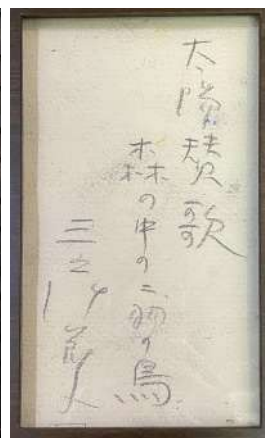 太陽賛歌
森の中の二羽の鳥
三之